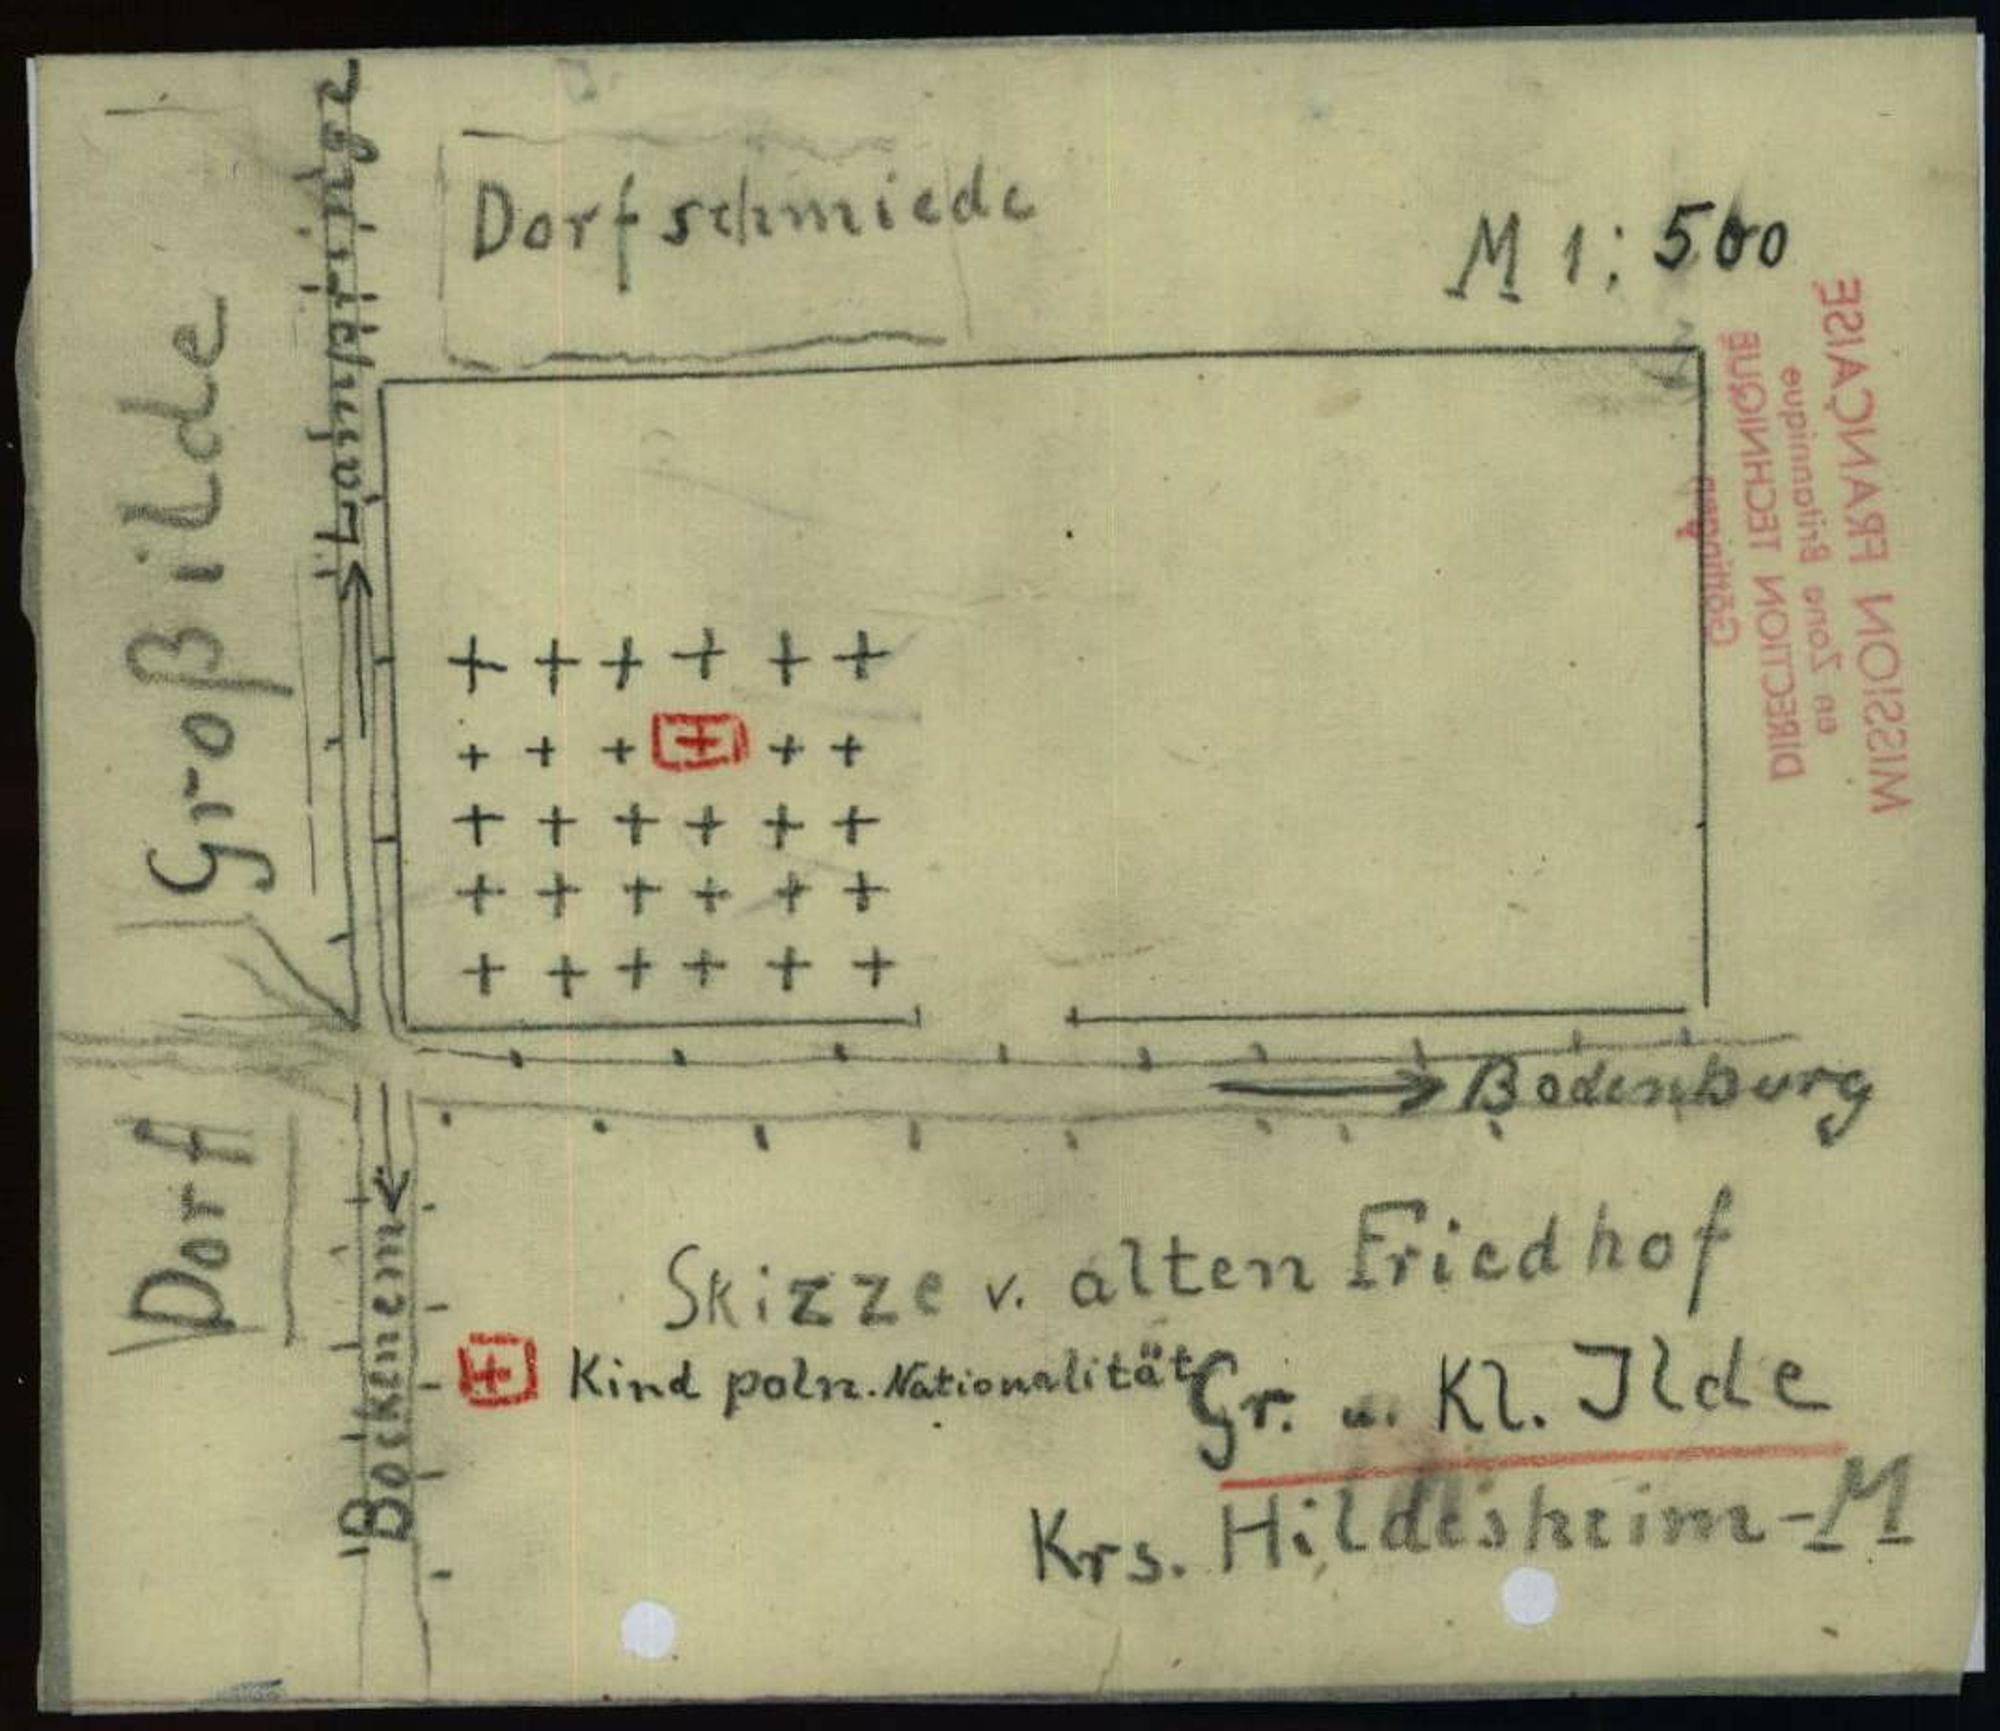 Dorfschmiede
M 1:500
Lamspringe
Dorf Großilde
MISSION FRANÇAISE
en Zone Britannique
DIRECTION TECHNIQUE
Göttingen
Bodenburg
Bockenem
Skizze v. alten Friedhof
Kind poln. Nationalität
Gr. u. Kl. Ilde
Krs. Hildesheim-M